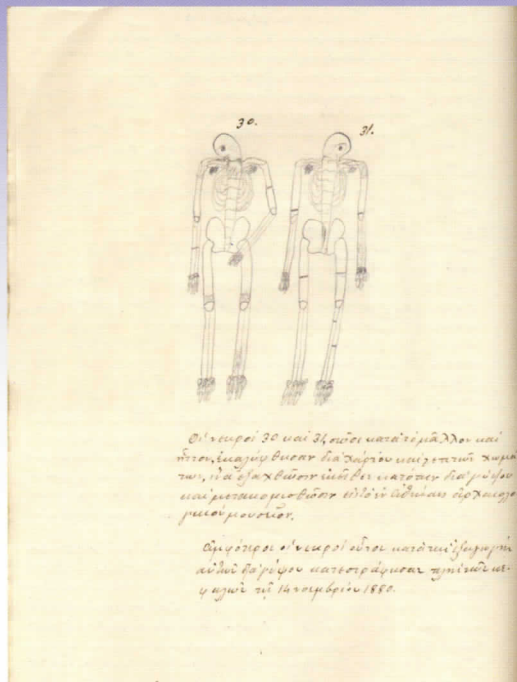 30.
31.
Οἱ νεκροὶ 30 καὶ 31, σῶοι κατὰ τὸ μᾶλλον καὶ
ἧττον, ἐκαλύφθησαν διὰ χάρτου καὶ λεπτῶν χωμά
των, ἵνα ἐξαχθῶσιν ἐκεῖθεν κατόπιν διὰ γύψου
καὶ μετακομισθῶσιν εἰς τὸ ἐν Ἀθήναις ἀρχαιολο
γικὸν μουσεῖον.
Ἀμφότεροι οἱ νεκροὶ οὗτοι κατὰ τὴν ἐξαγωγὴν
αὐτῶν διὰ γύψου κατεστράφησαν πλὴν τῶν κε-
φαλῶν τῇ 14 νοεμβρίου 1880.